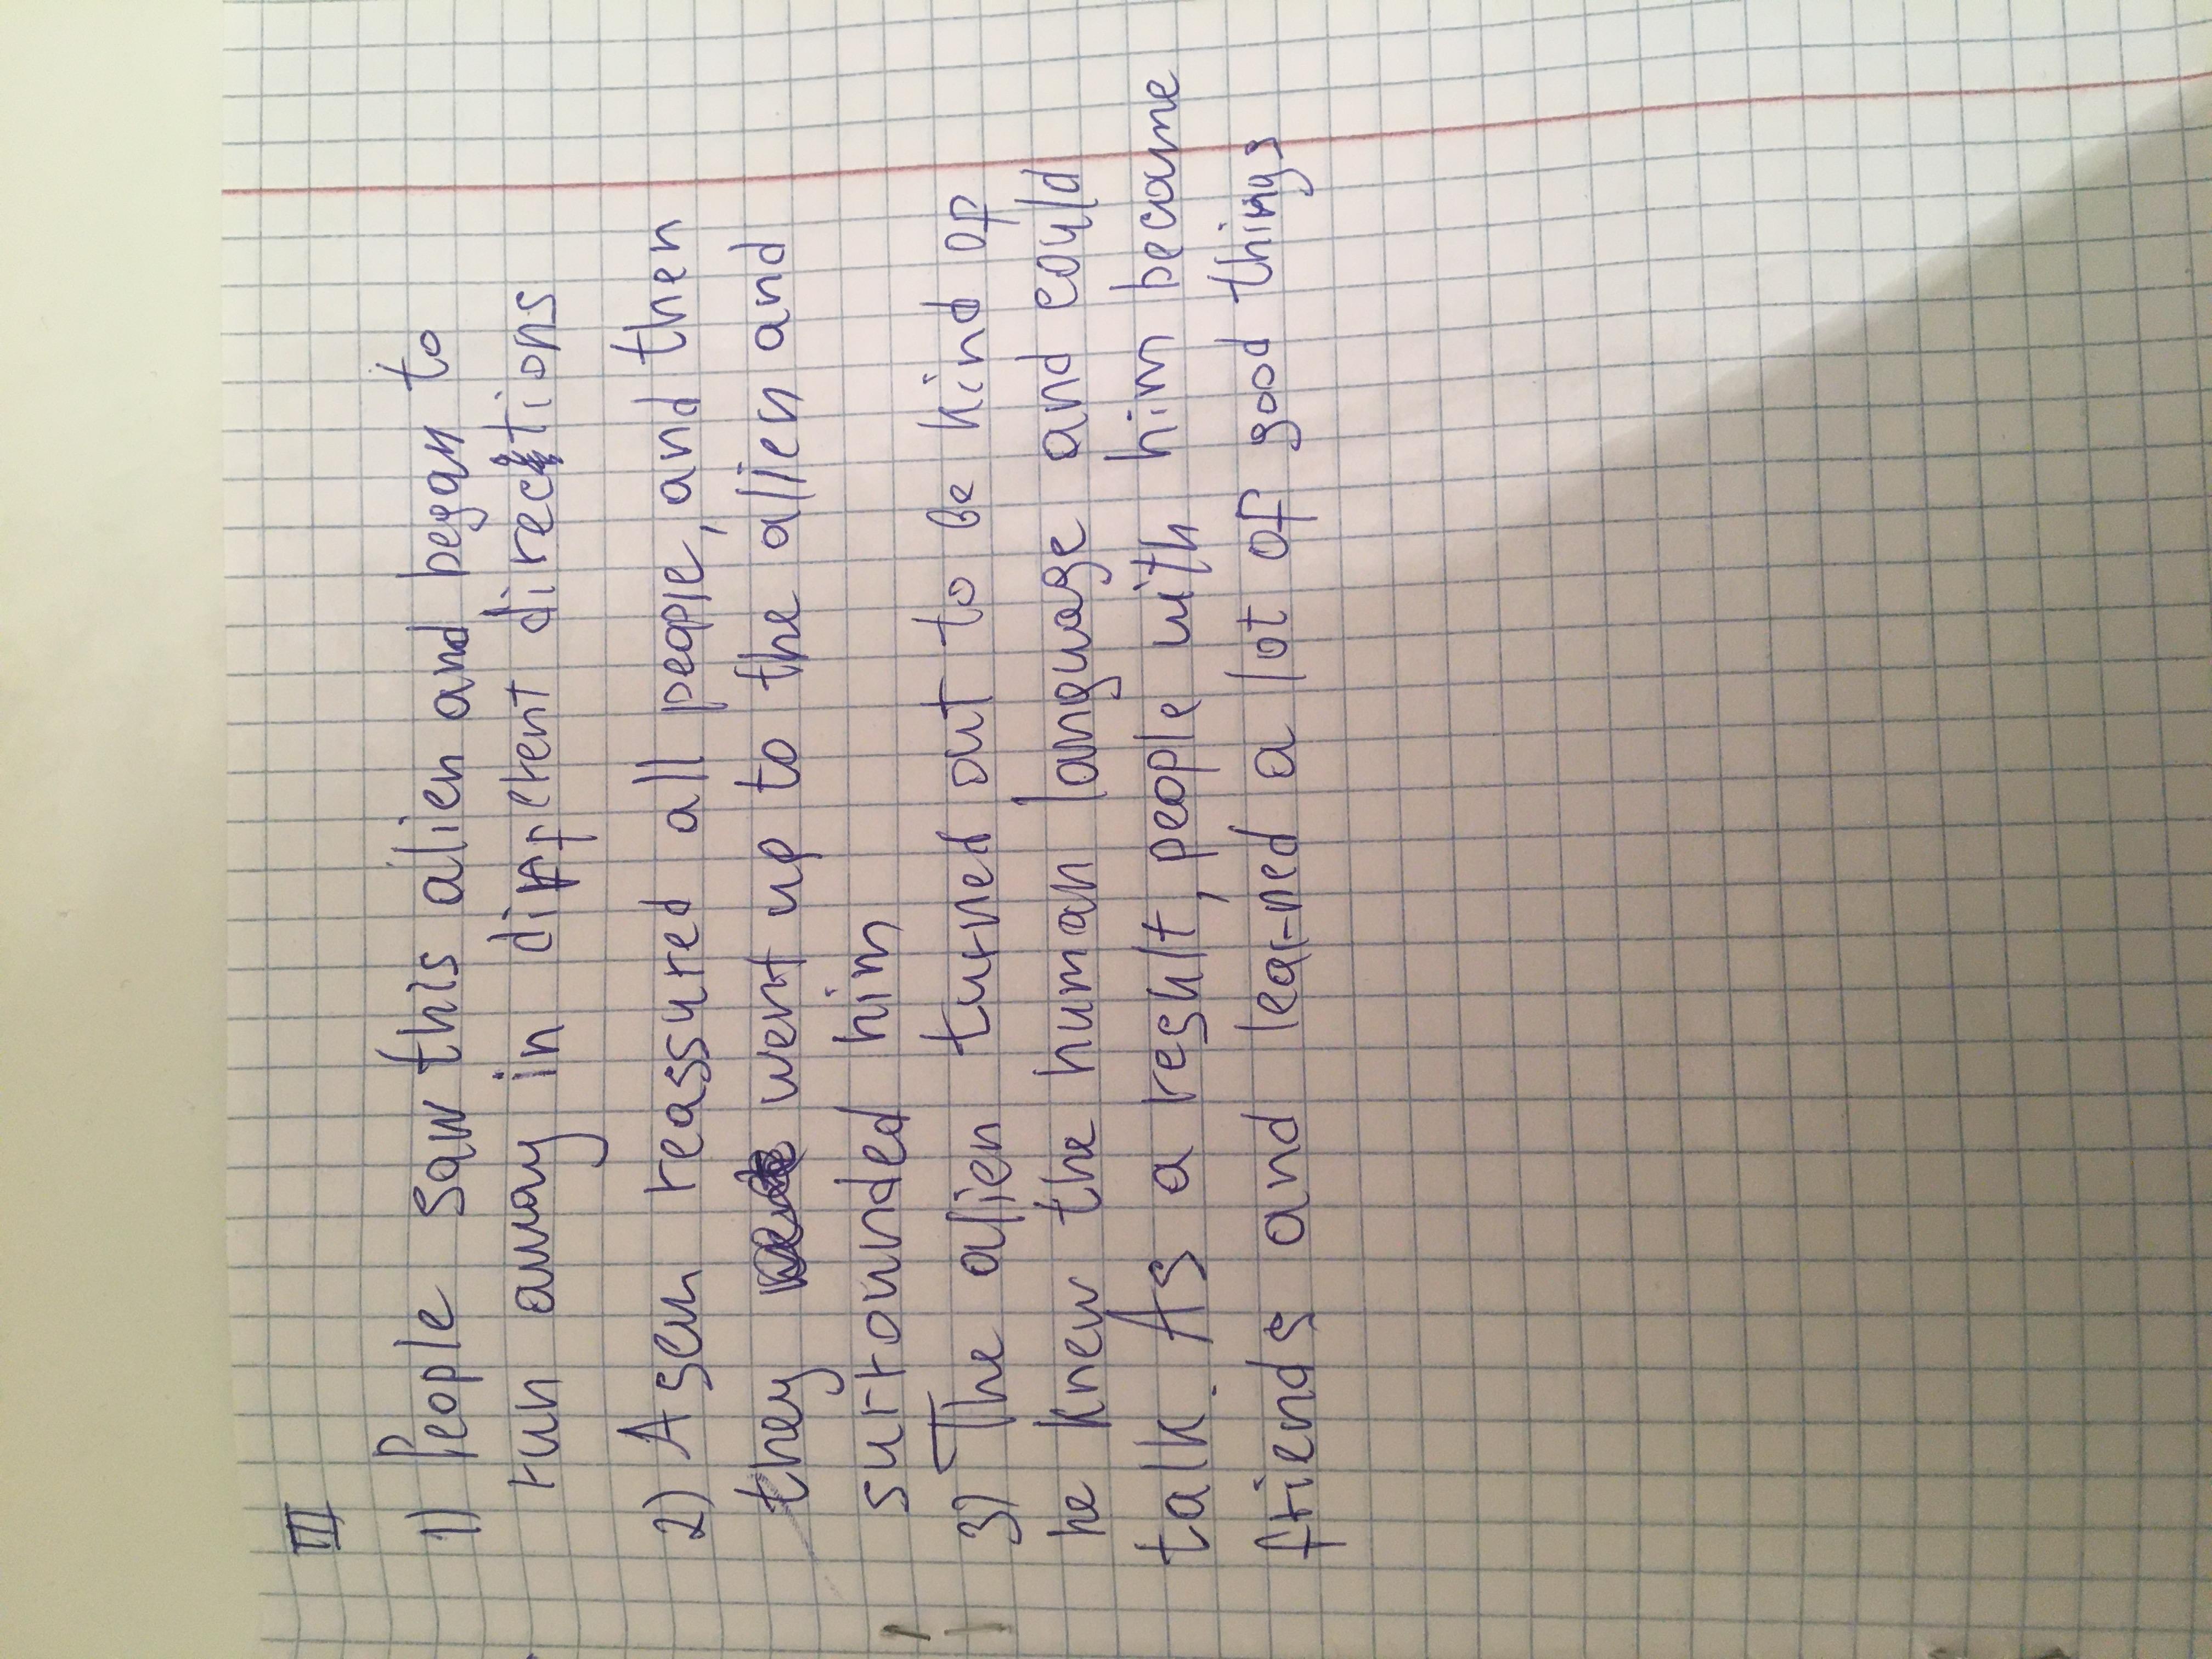 III
1) People saw this alien and began to
run away in different directions
2) Asen reassured all people, and then
they went up to the alien and
surrounded him
3) The alien turned out to be kind of
he knew the human language and could
talk. As a result, people with him became
friends and learned a lot of good things